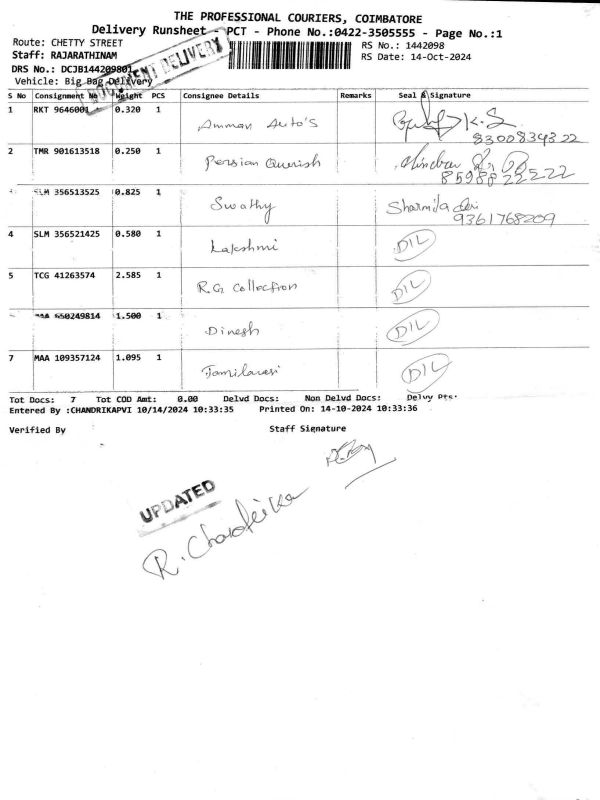 THE PROFESSIONAL COURIERS, COIMBATORE
Delivery Runsheet - PCT - Phone No.:0422-3505555 - Page No.:1
Route: CHETTY STREET RS No.: 1442098
Staff: RAJARATHINAM RS Date: 14-Oct-2024
DRS No.: DCJB144209801
DOCUMENT DELIVERY
Vehicle: Big Bag Delivery
S No Consignment No Weight PCS Consignee Details Remarks Seal & Signature
1 RKT 9646001 0.320 1 Amman Auto's K.S
8300834322
2 TMR 901613518 0.250 1 Persian Querish
8598822222
SLM 356513525 0.825 1 Swathy Sharmila devi
9361768209
4 SLM 356521425 0.580 1 Lakshmi DIL
5 TCG 41263574 2.585 1 R.G. Collection DIL
MAA 650249814 1.500 1 Dinesh DIL
7 MAA 109357124 1.095 1 Tamilarasi DIL
Tot Docs: 7 Tot COD Amt: 0.00 Delvd Docs: Non Delvd Docs: Delvy Pts:
Entered By :CHANDRIKAPVI 10/14/2024 10:33:35 Printed On: 14-10-2024 10:33:36
Verified By Staff Signature
UPDATED
R. Chandrika